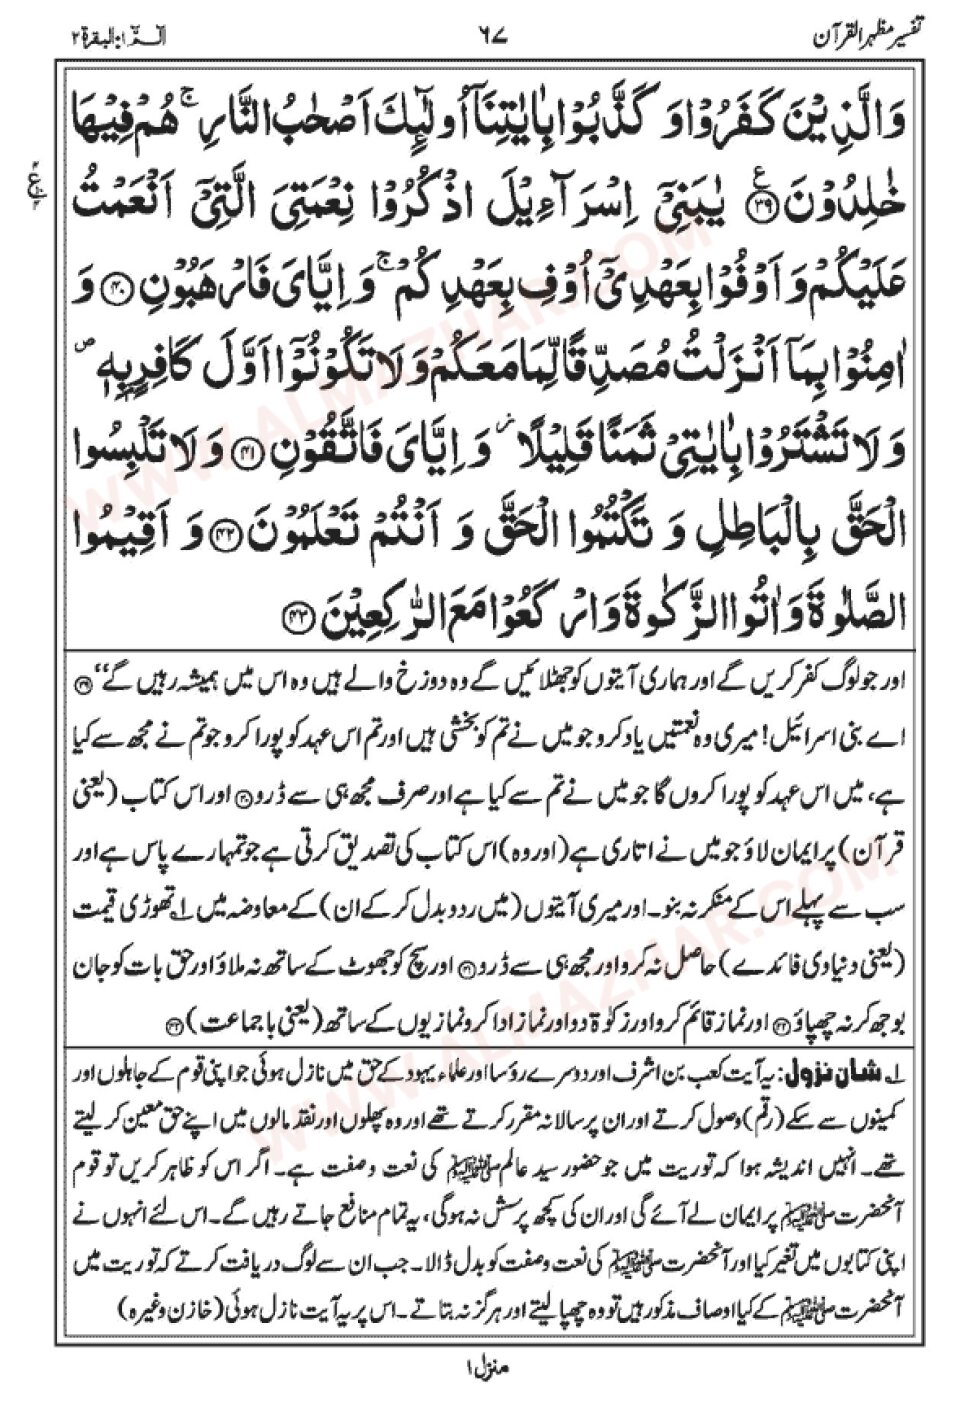 تفسیر مظہر القرآن
۶۷
الٓمّٓ ۱: البقرۃ ۲
وَالَّذِيْنَ كَفَرُوْا وَ كَذَّبُوْا بِاٰيٰتِنَآ اُولٰٓئِكَ اَصْحٰبُ النَّارِ ۚ هُمْ فِيْهَا
خٰلِدُوْنَ ﴿۳۹﴾ ع يٰبَنِيْٓ اِسْرَآءِيْلَ اذْكُرُوْا نِعْمَتِيَ الَّتِيْٓ اَنْعَمْتُ
عَلَيْكُمْ وَ اَوْفُوْا بِعَهْدِيْٓ اُوْفِ بِعَهْدِكُمْ ۚ وَ اِيَّايَ فَارْهَبُوْنِ ﴿۴۰﴾ وَ
اٰمِنُوْا بِمَآ اَنْزَلْتُ مُصَدِّقًا لِّمَا مَعَكُمْ وَ لَا تَكُوْنُوْٓا اَوَّلَ كَافِرٍۭ بِهٖ ۪
وَ لَا تَشْتَرُوْا بِاٰيٰتِيْ ثَمَنًا قَلِيْلًا ۫ وَ اِيَّايَ فَاتَّقُوْنِ ﴿۴۱﴾ وَ لَا تَلْبِسُوا
الْحَقَّ بِالْبَاطِلِ وَ تَكْتُمُوا الْحَقَّ وَ اَنْتُمْ تَعْلَمُوْنَ ﴿۴۲﴾ وَ اَقِيْمُوا
الصَّلٰوةَ وَ اٰتُوا الزَّكٰوةَ وَ ارْكَعُوْا مَعَ الرّٰكِعِيْنَ ﴿۴۳﴾
اور جو لوگ کفر کریں گے اور ہماری آیتوں کو جھٹلائیں گے وہ دوزخ والے ہیں وہ اس میں ہمیشہ رہیں گے“ ﴿۳۹﴾
اے بنی اسرائیل! میری وہ نعمتیں یاد کرو جو میں نے تم کو بخشی ہیں اور تم اس عہد کو پورا کرو جو تم نے مجھ سے کیا
ہے، میں اس عہد کو پورا کروں گا جو میں نے تم سے کیا ہے اور صرف مجھ ہی سے ڈرو ﴿۴۰﴾ اور اس کتاب (یعنی
قرآن) پر ایمان لاؤ جو میں نے اتاری ہے (اور وہ) اس کتاب کی تصدیق کرتی ہے جو تمہارے پاس ہے اور
سب سے پہلے اس کے منکر نہ بنو۔ اور میری آیتوں (میں ردو بدل کر کے ان) کے معاوضہ میں ۱؎ تھوڑی قیمت
(یعنی دنیاوی فائدے) حاصل نہ کرو اور مجھ ہی سے ڈرو ﴿۴۱﴾ اور سچ کو جھوٹ کے ساتھ نہ ملاؤ اور حق بات کو جان
بوجھ کر نہ چھپاؤ ﴿۴۲﴾ اور نماز قائم کرو اور زکوٰۃ دو اور نماز ادا کرو نمازیوں کے ساتھ (یعنی با جماعت) ﴿۴۳﴾
۱؎ شان نزول: یہ آیت کعب بن اشرف اور دوسرے رؤسا اور علماء یہود کے حق میں نازل ہوئی جو اپنی قوم کے جاہلوں اور
کمینوں سے سکے (رقم) وصول کرتے اور ان پر سالانہ مقرر کرتے تھے اور وہ پھلوں اور نقد مالوں میں اپنے حق معین کر لیتے
تھے۔ انہیں اندیشہ ہوا کہ توریت میں جو حضور سید عالم ﷺ کی نعت وصفت ہے۔ اگر اس کو ظاہر کریں تو قوم
آنحضرت ﷺ پر ایمان لے آئے گی اور ان کی کچھ پرسش نہ ہوگی، یہ تمام منافع جاتے رہیں گے۔ اس لئے انہوں نے
اپنی کتابوں میں تغیر کیا اور آنحضرت ﷺ کی نعت وصفت کو بدل ڈالا۔ جب ان سے لوگ دریافت کرتے کہ توریت میں
آنحضرت ﷺ کے کیا اوصاف مذکور ہیں تو وہ چھپا لیتے اور ہرگز نہ بتاتے۔ اس پر یہ آیت نازل ہوئی (خازن وغیرہ)
منزل ۱
WWW.ALMAZHAR.COM
WWW.ALMAZHAR.COM